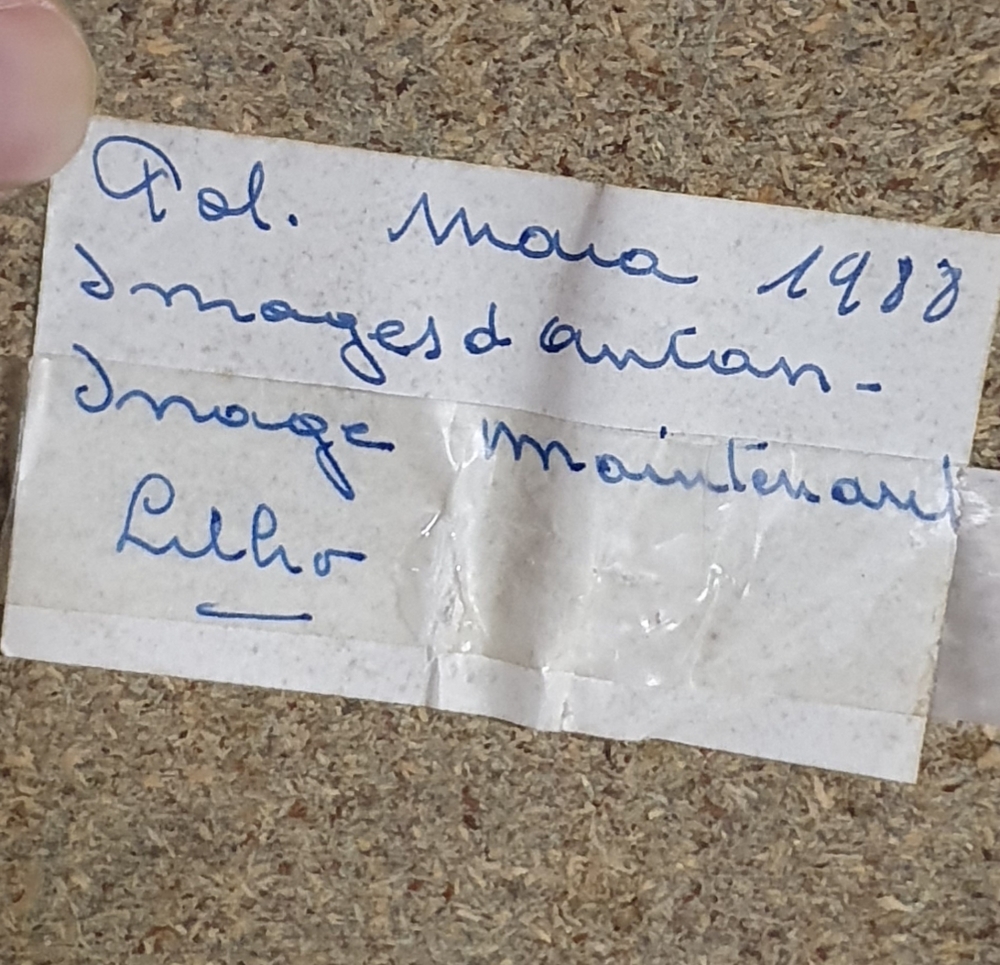 Pol. Mara 1988
Images d'antan -
Image maintenant
Litho